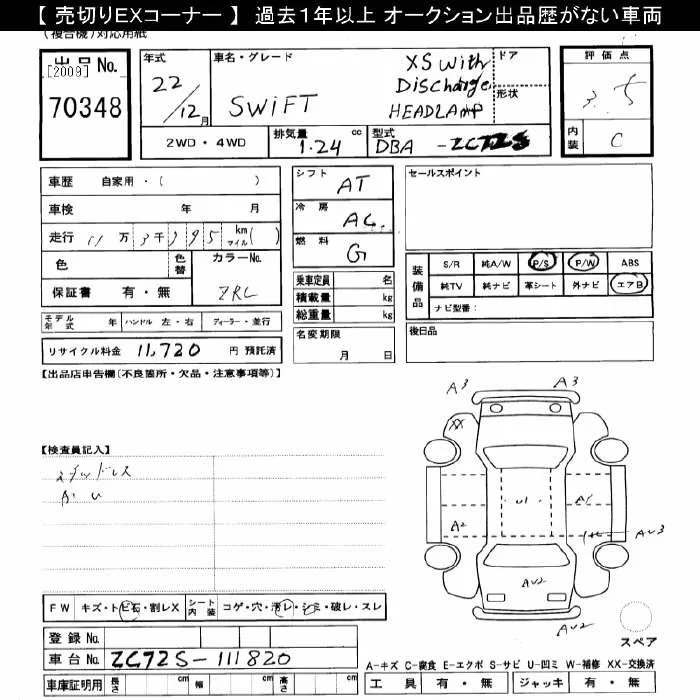 【 売切りEXコーナー 】 過去1年以上 オークション出品歴がない車両
(複合機)対応用紙
出品 No.
[2009]
70348
年式
22/12月
車名・グレード
SWiFT
XS with Discharge HEADLAMP
ドア
形状
評価点
3.5
内装
C
2WD・4WD
排気量 1.24 cc
型式 DBA -ZC72S
車歴 自家用・( )
車検 年 月
走行 11万3千395 km マイル( )
色
色替
カラーNo.
ZRL
保証書 有・無
シフト AT
冷房 AC
燃料 G
乗車定員 名
積載量 kg
総重量 kg
名変期限
月 日
セールスポイント
装備品
S/R 純A/W P/S P/W ABS
純TV 純ナビ 革シート 外ナビ エアB
ナビ型番:
後日品
モデル年式 年 ハンドル 左・右 ディーラー・並行
リサイクル料金 11,720 円 預託済
【出品店申告欄(不良箇所・欠品・注意事項等)】
【検査員記入】
スタッドレス
A3 A3
XX
U1
A2
A1
AU3
AU2
AU2
スペア
FW キズ・トビ石・割レX シート内装 コゲ・穴・汚レ・シミ・破レ・スレ
登録 No.
車台 No. ZC72S-111820
車庫証明用 長さ cm 幅 cm 高さ cm
A-キズ C-腐食 E-エクボ S-サビ U-凹ミ W-補修 XX-交換済
工具 有・無 ジャッキ 有・無